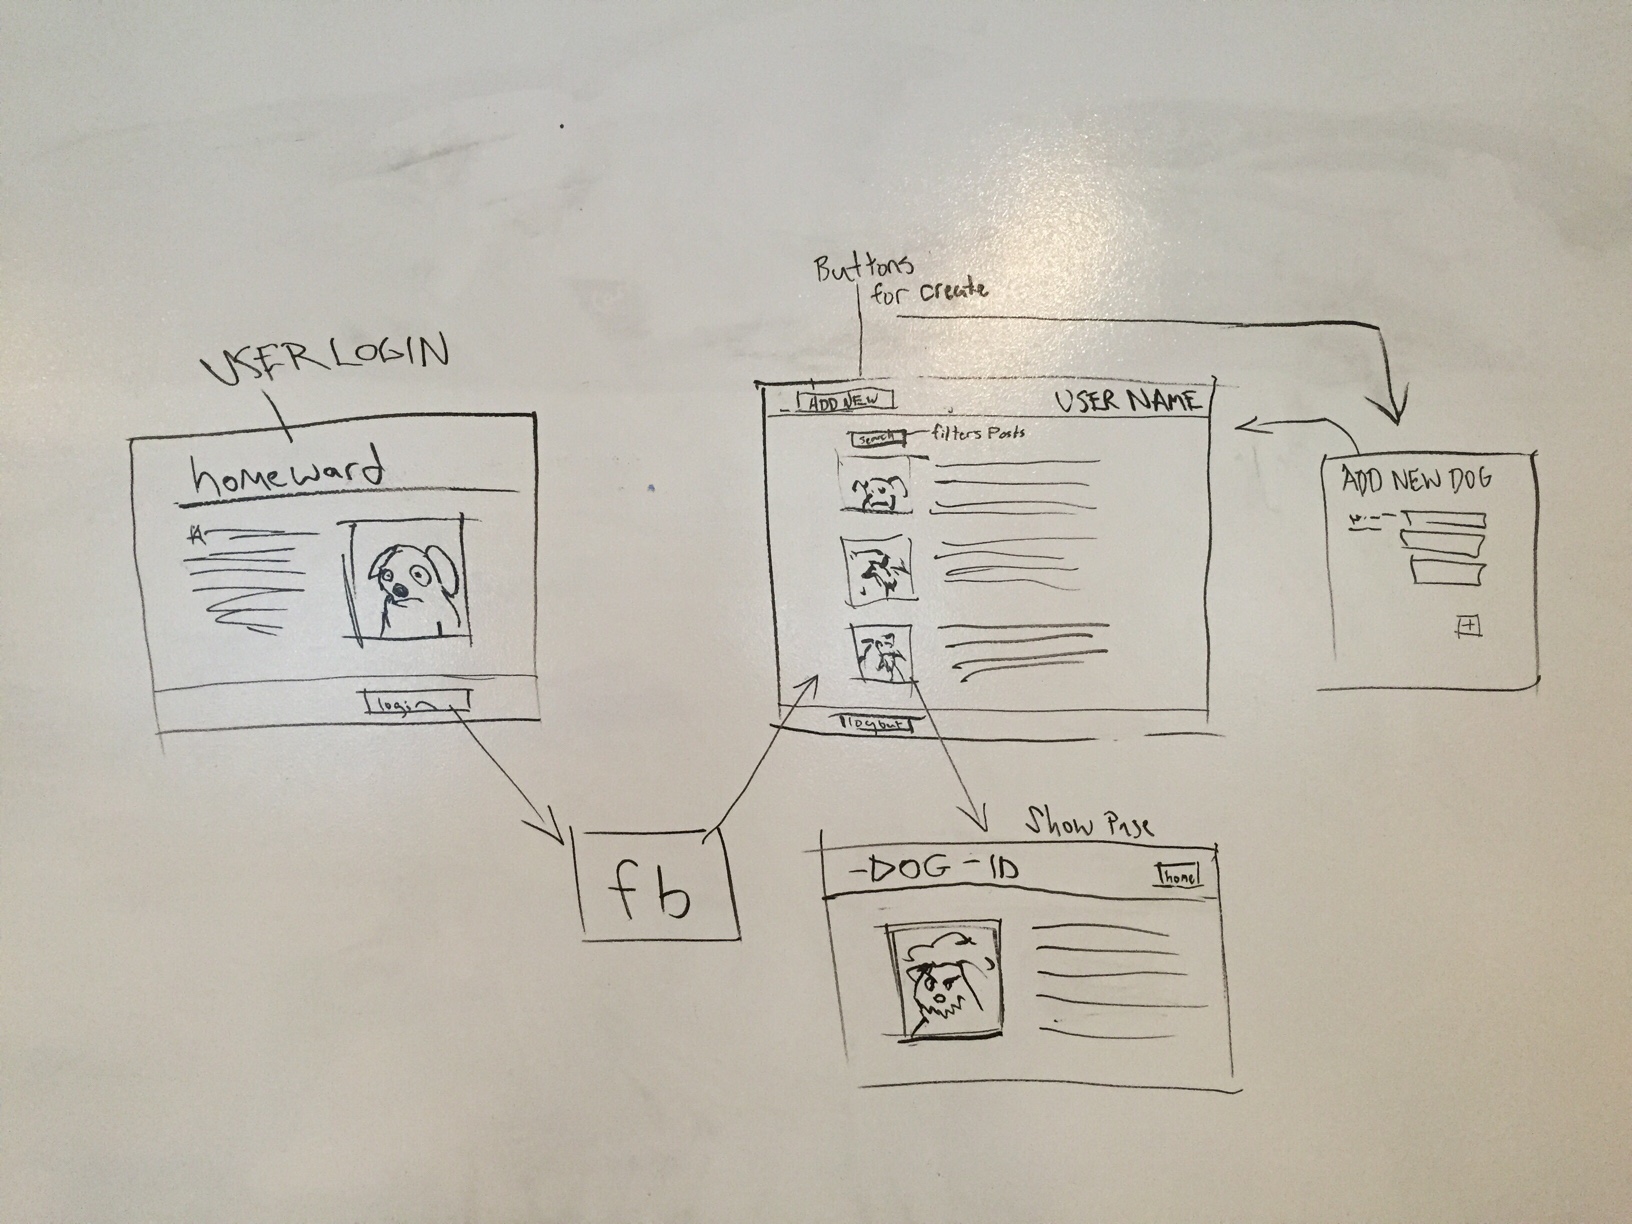 USER LOGIN
homeward
login
fb
Buttons
for create
ADD NEW
USER NAME
search
filters Posts
logout
ADD NEW DOG
+
Show Page
-DOG-ID
home